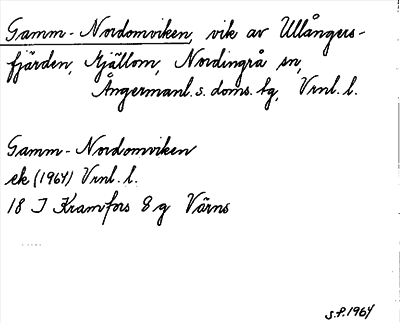 Gamm-Nordomviken, vik av Ullångers-
fjärden, Mjällom, Nordingrå sn,
Ångermanl. s. doms. tg, Vrnl. l.
Gamm-Nordomviken
ek (1964) Vrnl. l.
18 I Kramfors 8 g Värns
S.P. 1964